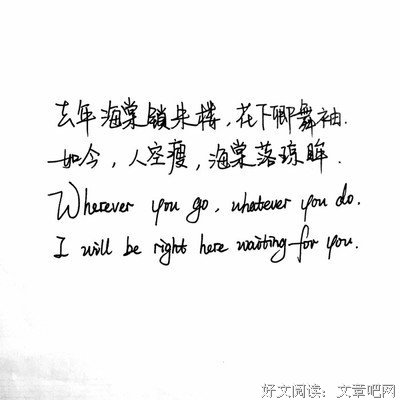 去年海棠锁朱楼,花下卿舞袖.
如今,人空瘦,海棠落琼眸.
Wherever you go, whatever you do.
I will be right here waiting for you.
好文阅读：文章吧网